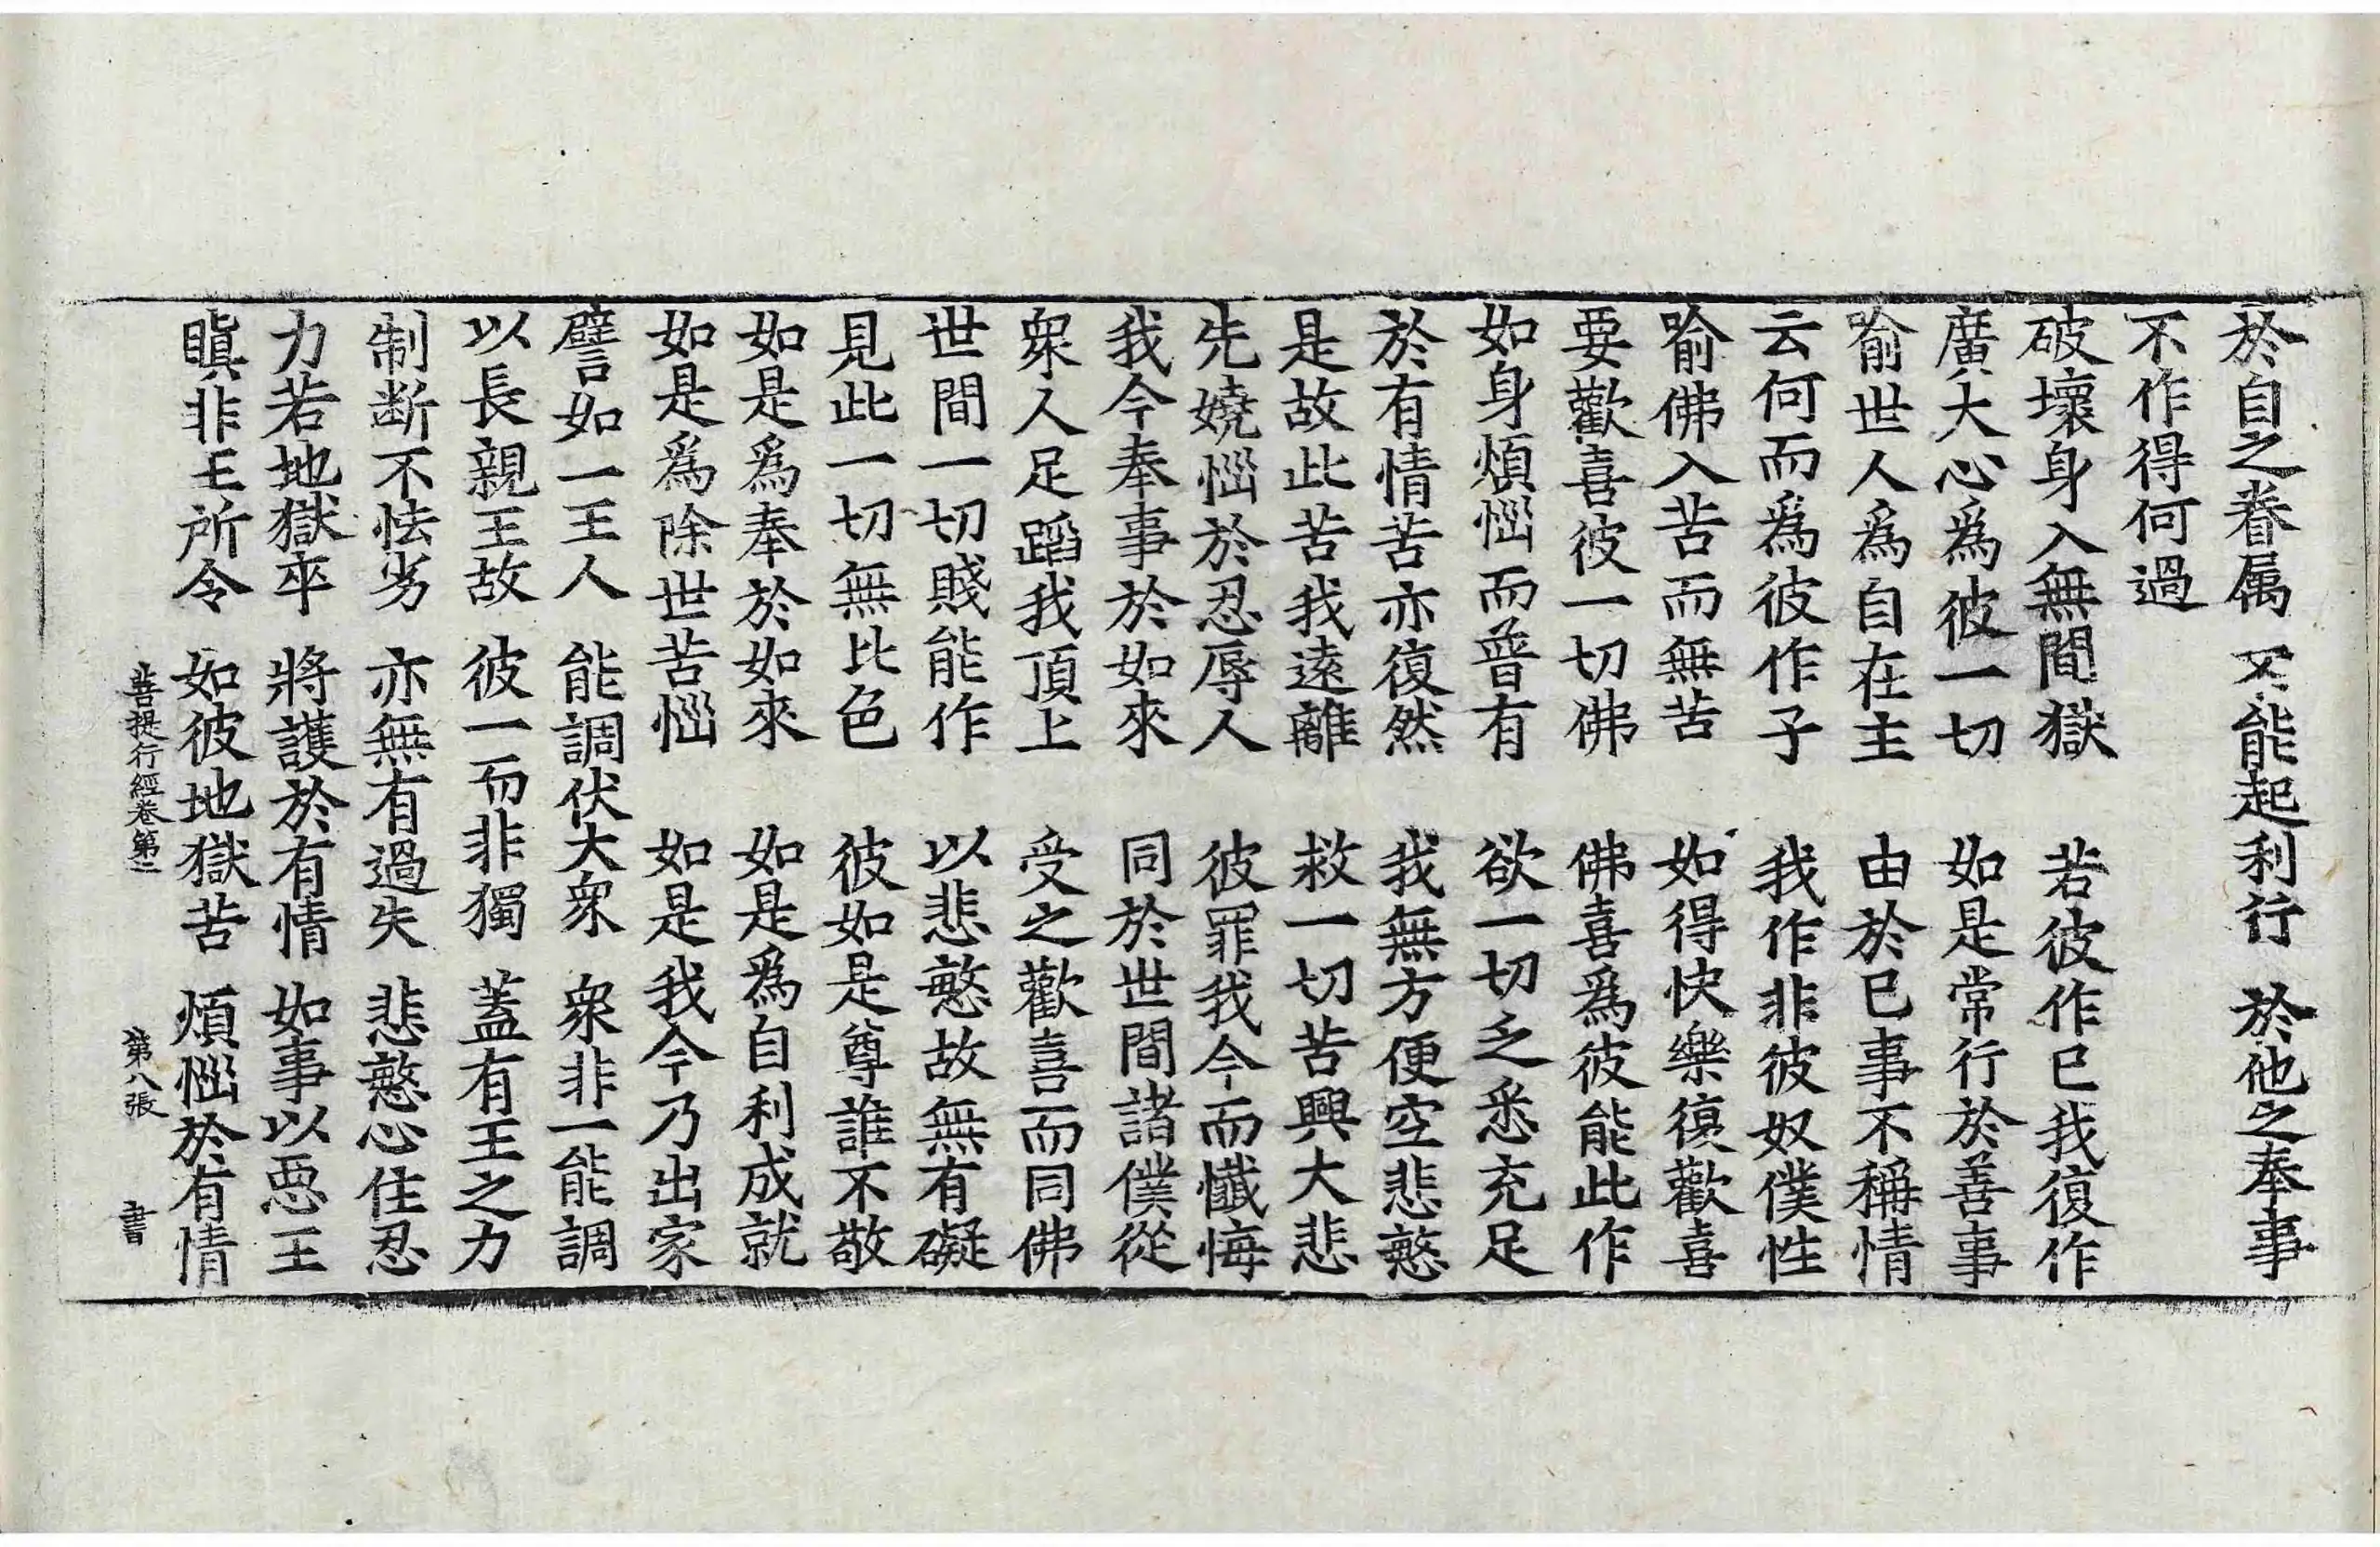 於自之眷属　不能起利行　於他之奉事
不作得何過
破壞身入無間獄　若彼作已我復作
廣大心爲彼一切　如是常行於善事
喻世人爲自在主　由於已事不稱情
云何而爲彼作子　我作非彼奴僕性
喻佛入苦而無苦　如得快樂復歡喜
要歡喜彼一切佛　佛喜爲彼能此作
如身煩惱而普有　欲一切之悉充足
於有情苦亦復然　我無方便空悲愍
是故此苦我遠離　救一切苦興大悲
先嬈惱於忍辱人　彼罪我今而懺悔
我今奉事於如來　同於世間諸僕從
衆人足蹈我頂上　受之歡喜而同佛
世間一切賤能作　以悲愍故無有礙
見此一切無比色　彼如是尊誰不敬
如是爲奉於如來　如是爲自利成就
如是爲除世苦惱　如是我今乃出家
譬如一王人　能調伏大衆　衆非一能調
以長親王故　彼一而非獨　蓋有王之力
制断不怯劣　亦無有過失　悲愍心住忍
力若地獄卒　將護於有情　如事以惡王
瞋非王所令　如彼地獄苦　煩惱於有情
菩提行經卷第二　第八張　書